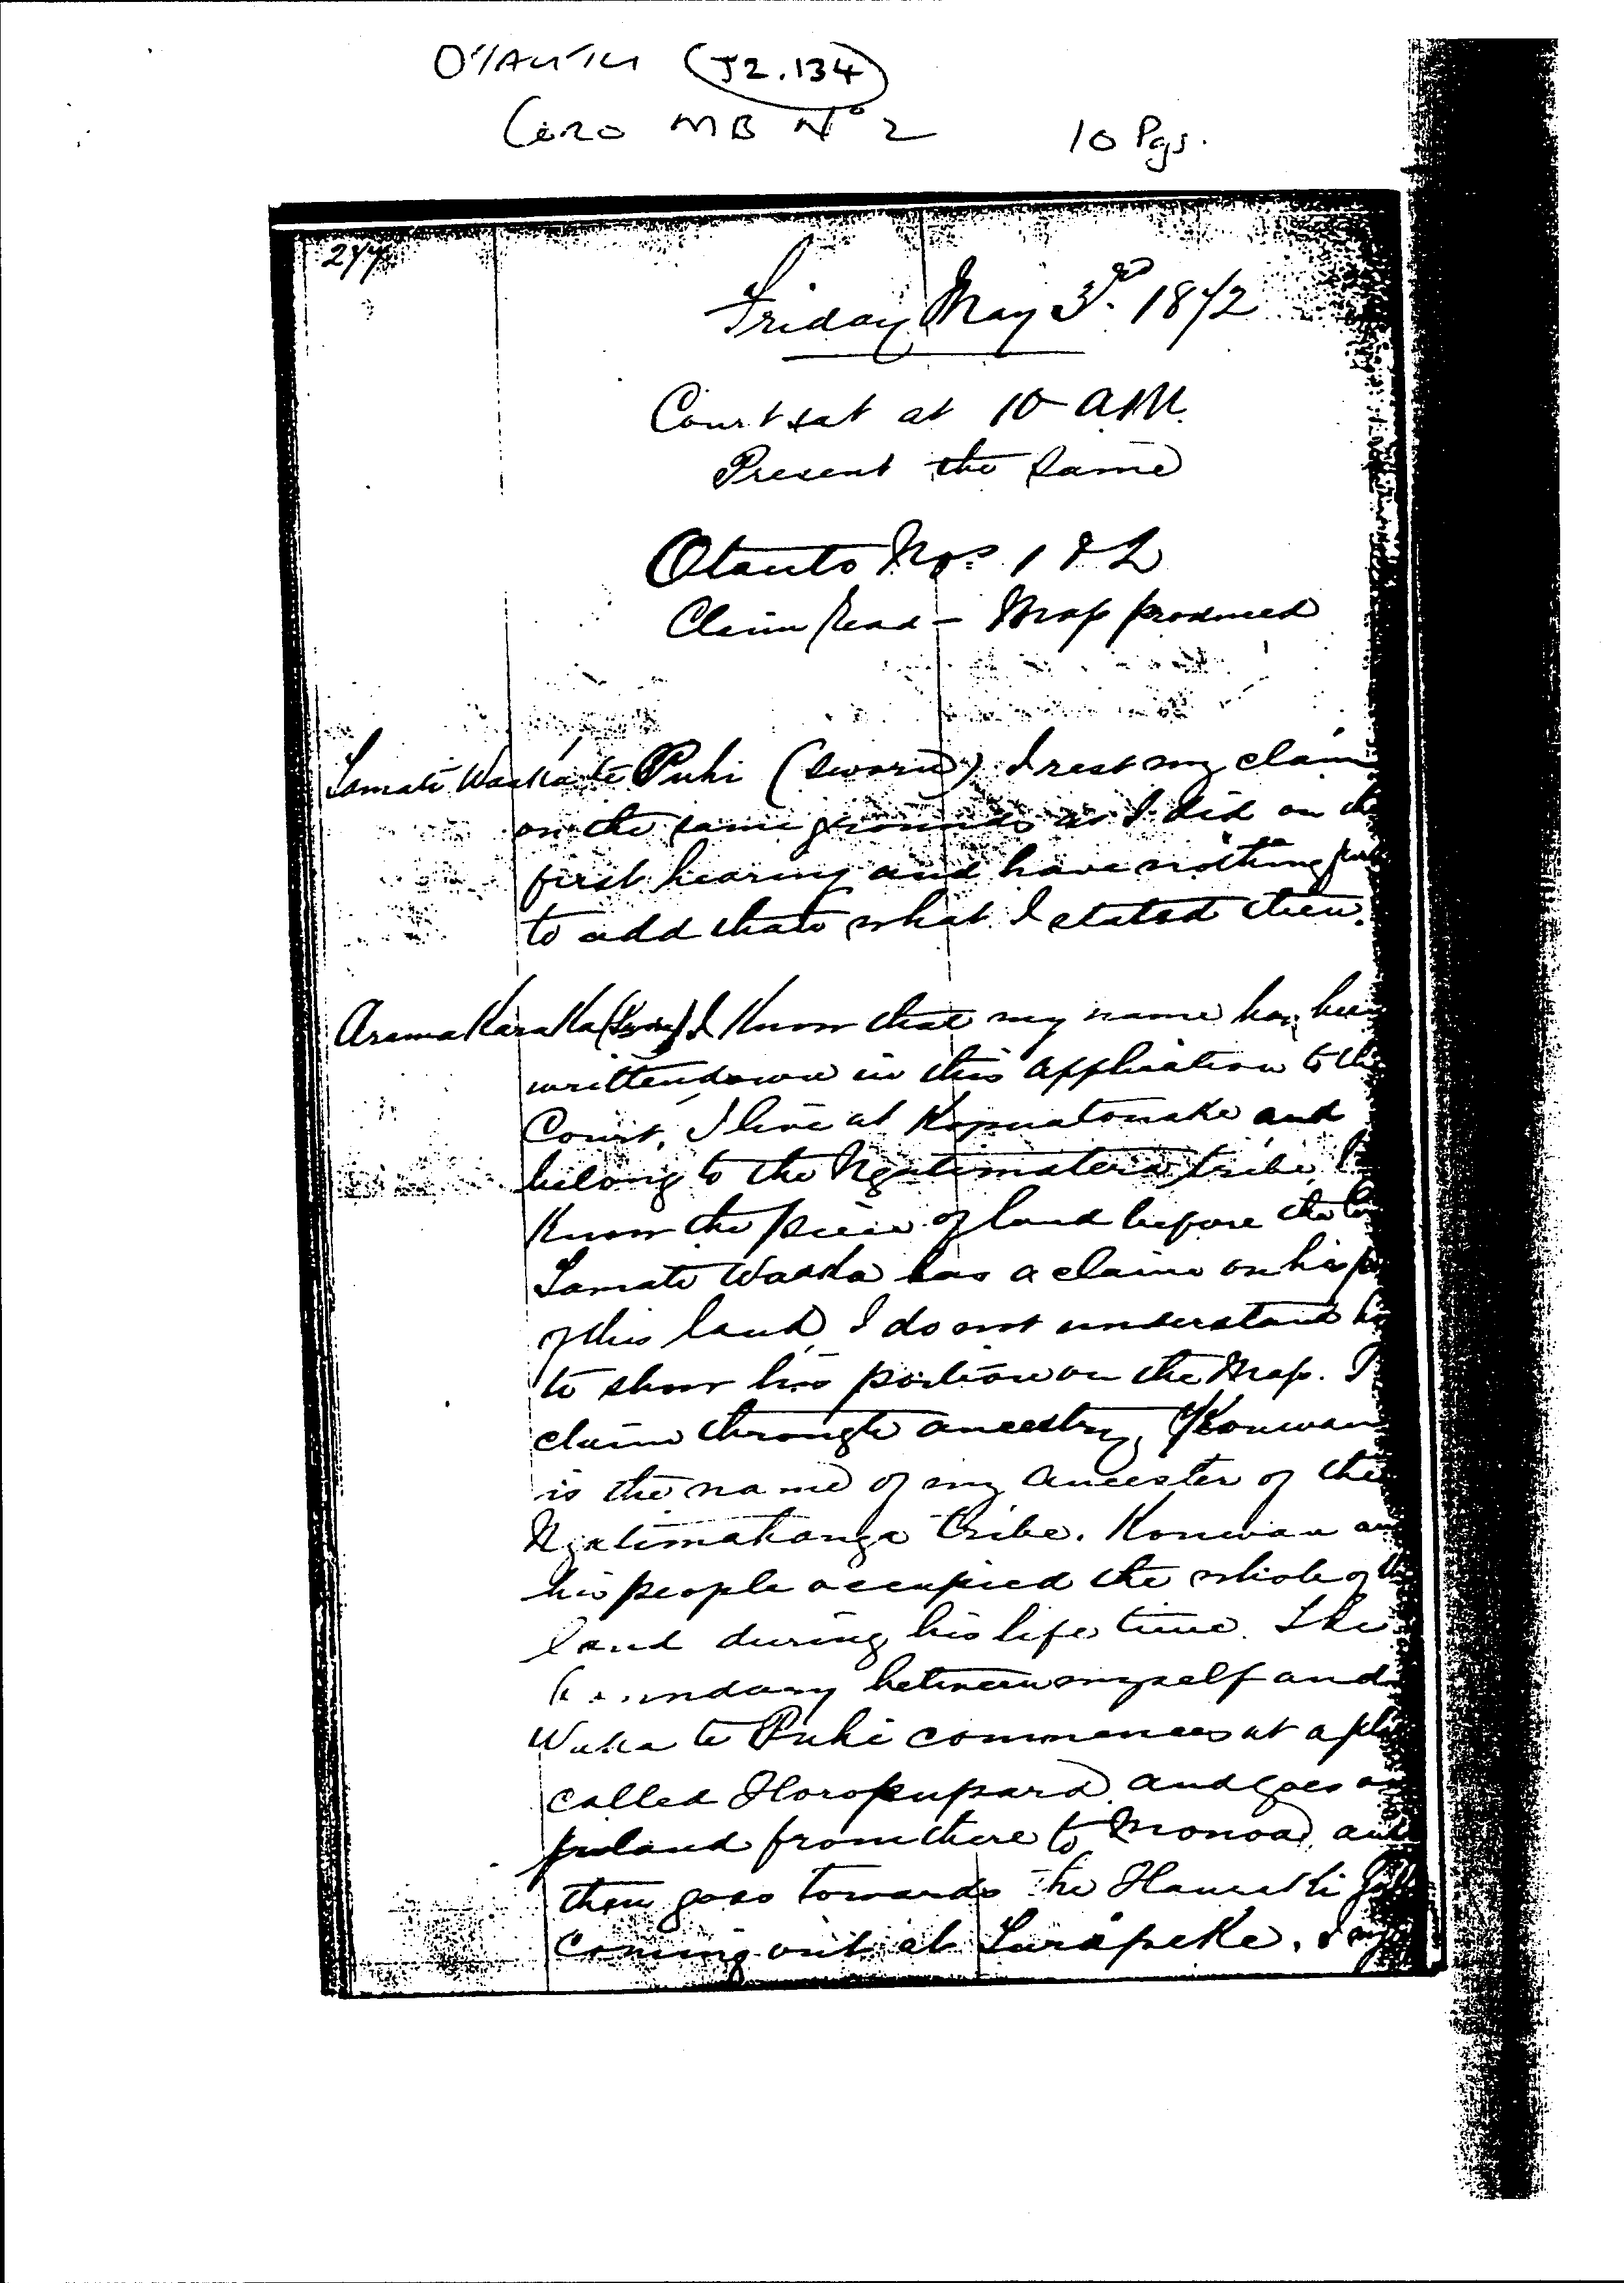 OTAUTU (J2.134)
Coro MB No 2 10 Pgs.
277
Friday May 3rd. 1872
Court sat at 10 A.M.
Present the same
Otautu Nos. 1 & 2
Claim read - Map produced
Tamati Waaka te Puhi (sworn) I rest my claim
on the same grounds as I did on the
first hearing and have nothing
to add thato what I stated then.
Arama Karaka (Sworn) I know that my name has been
written down in this application to the
Court, I live at Kopuatonake and
belong to the Ngatimatera tribe, I
know the piece of land before the
Tamati Waaka has a claim on his
of this land, I do not understand
to show his portion on the Map. I
claim through ancestry, Konwau
is the name of my ancestor of the
Ngatimakanga tribe. Konwau and
his people occupied the whole of
land during his life time. The
boundary between myself and
Waka te Puhi commences at a
called Horopupara and goes
inland from there to Monoa, and
then goes towards the Hauraki
coming out at Turapeke.